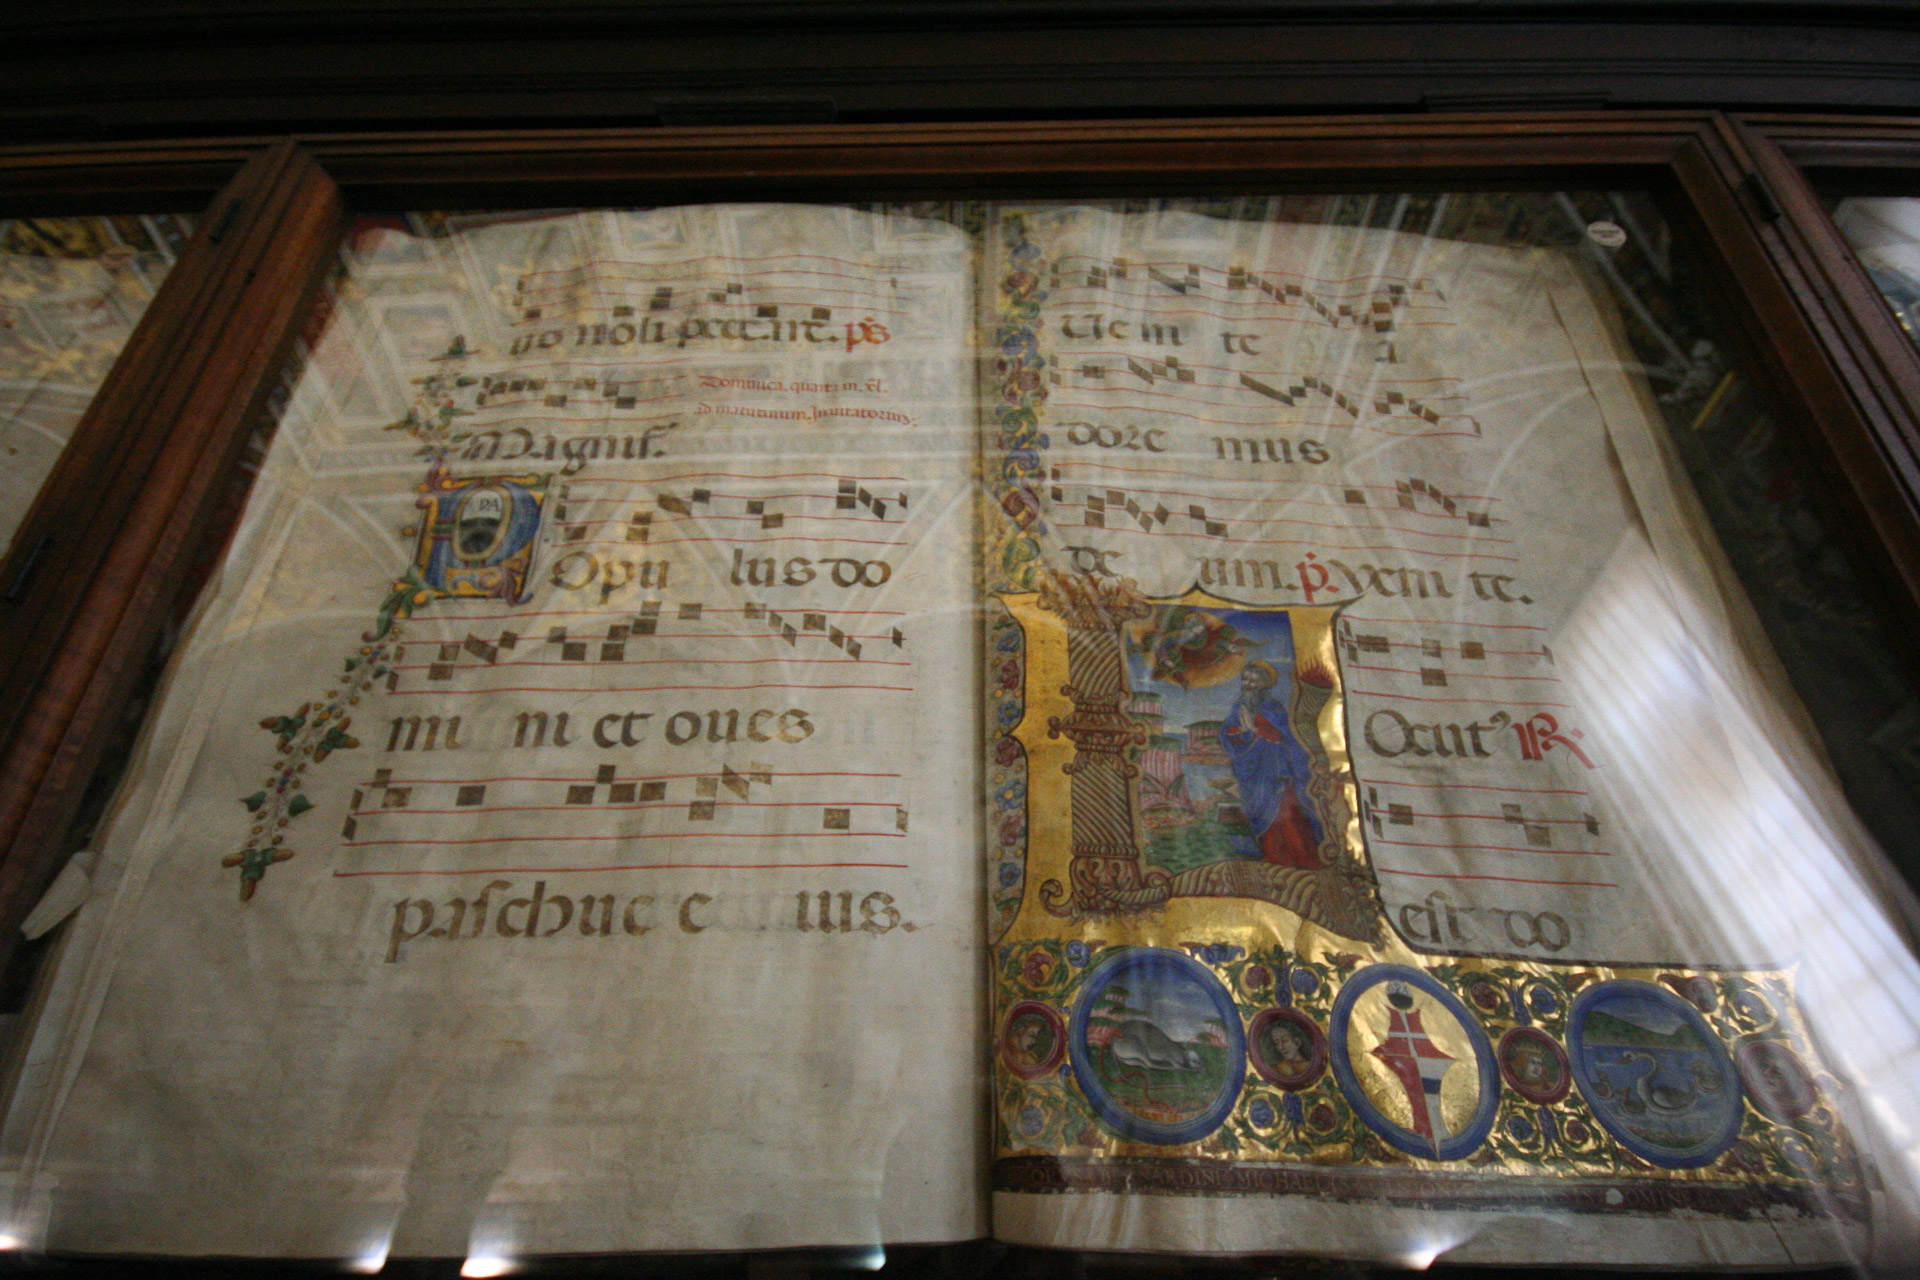 no noli peccare. ps
Dominica. quarta in. xl.
ad matutinum. Invitatorium.
Magnif.
Popu lus do
mi ni et oues
paschue e ius.
Ue ni te a
dore mus
de um. p. veni te.
Locut9 R.
est do
MICHAELIS